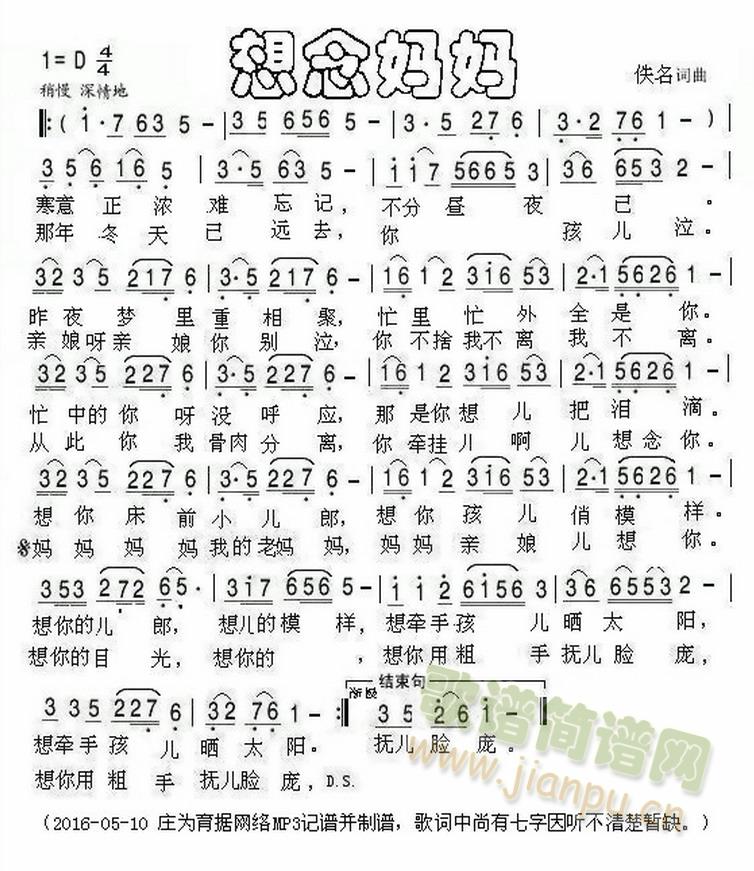 想念妈妈
1=D 4/4
稍慢 深情地
佚名词曲
‖:( i·7 63 5 - | 35 656 5 - | 3·5 27 6 | 3·2 76 1 - ) |
35 6 16 5 | 3·5 63 5 - | i i i7 5665 3 | 36 653 2 - |
寒意正浓难忘记，不分昼夜已。
那年冬天已远去，你孩儿泣。
32 35 217 6 | 3·5 217 6 - | 16 12 3i6 53 | 2·1 5626 1 - |
昨夜梦里重相聚，忙里忙外全是你。
亲娘呀亲娘你别泣，你不捨我不离我不离。
32 35 227 6 | 3·5 227 6 - | 16 12 3i6 53 | 2·1 5626 1 - |
忙中的你呀没呼应，那是你想儿把泪滴。
从此你我骨肉分离，你牵挂儿啊儿想念你。
32 35 227 6 | 3·5 227 6 - | 16 12 3i6 53 | 2·1 5626 1 - |
想你床前小儿郎，想你孩儿俏模样。
妈妈妈妈我的老妈妈，妈妈亲娘儿想你。
353 272 65· | 3i7 656 5 - | i i 2 6i56 3 | 36 6553 2 - |
想你的儿郎，想儿的模样，想牵手孩儿晒太阳，
想你的目光，想你的，想你用粗手抚儿脸庞，
结束句
渐慢
3 35 227 6 | 32 76 1 - :‖ 35 26 i - ‖
想牵手孩儿晒太阳。抚儿脸庞。
想你用粗手抚儿脸庞，D.S.
歌谱简谱网
www.jianpu.cn
(2016-05-10 庄为育据网络MP3记谱并制谱，歌词中尚有七字因听不清楚暂缺。)